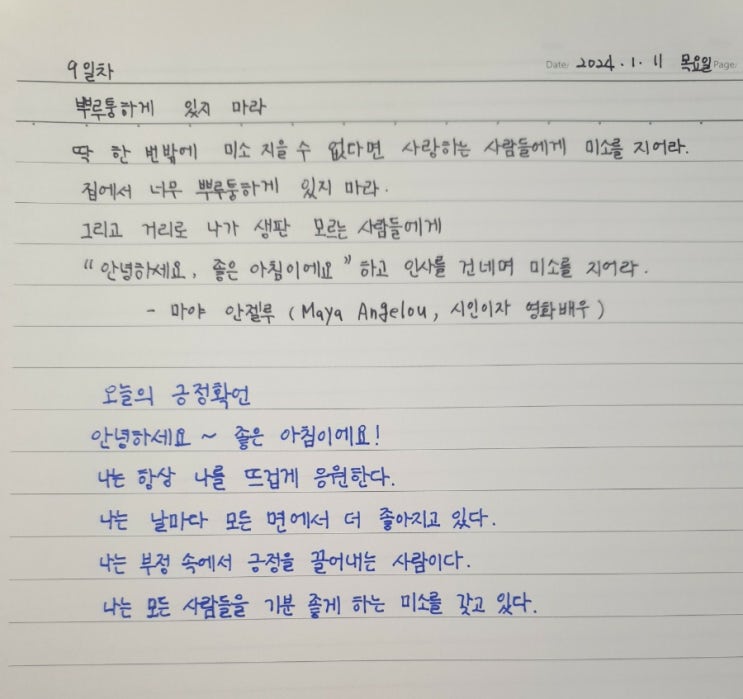 9일차
Date: 2024. 1. 11 목요일 Page:
뿌루퉁하게 있지 마라
딱 한 번밖에 미소 지을 수 없다면 사랑하는 사람들에게 미소를 지어라.
집에서 너무 뿌루퉁하게 있지 마라.
그리고 거리로 나가 생판 모르는 사람들에게
“안녕하세요, 좋은 아침이에요”하고 인사를 건네며 미소를 지어라.
- 마야 안젤루 (Maya Angelou, 시인이자 영화배우)
오늘의 긍정확언
안녕하세요 ~ 좋은 아침이에요!
나는 항상 나를 뜨겁게 응원한다.
나는 날마다 모든 면에서 더 좋아지고 있다.
나는 부정 속에서 긍정을 끌어내는 사람이다.
나는 모든 사람들을 기분 좋게 하는 미소를 갖고 있다.